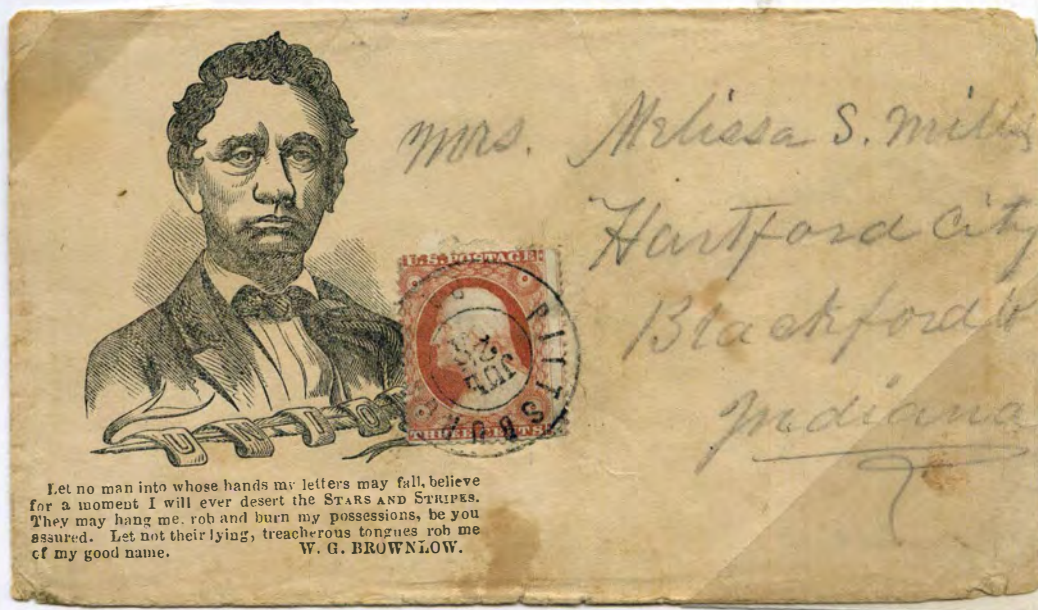 Mrs. Melissa S. Mills
Hartford City
Blackford Co
Indiana
U.S. POSTAGE
THREE CENTS
PITTSBURG
JUL
Let no man into whose hands my letters may fall, believe
for a moment I will ever desert the STARS AND STRIPES.
They may hang me, rob and burn my possessions, be you
assured. Let not their lying, treacherous tongues rob me
of my good name. W. G. BROWNLOW.